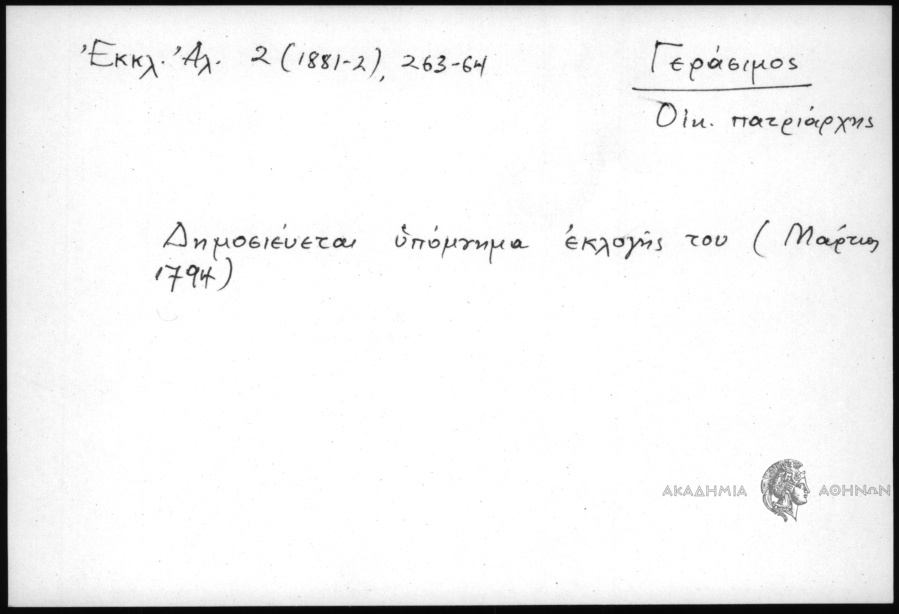 Ἐκκλ. Ἀλ. 2 (1881-2), 263-64
Γεράσιμος
Οἰκ. πατριάρχης
Δημοσιεύεται ὑπόμνημα ἐκλογῆς του (Μάρτιος
1794)
ΑΚΑΔΗΜΙΑ ΑΘΗΝΩΝ